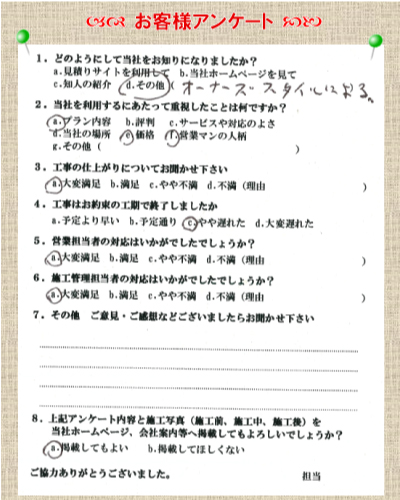 お客様アンケート
1．どのようにして当社をお知りになりましたか？
a.見積りサイトを利用して b.当社ホームページを見て
c.知人の紹介 d.その他( オーナーズスタイルによる。
2．当社を利用するにあたって重視したことは何ですか？
a.プラン内容 b.評判 c.サービスや対応のよさ
d.当社の場所 e.価格 f.営業マンの人柄
g.その他( )
3．工事の仕上がりについてお聞かせ下さい
a.大変満足 b.満足 c.やや不満 d.不満（理由 ）
4．工事はお約束の工期で終了しましたか
a.予定より早い b.予定通り c.やや遅れた d.大変遅れた
5．営業担当者の対応はいかがでしたでしょうか？
a.大変満足 b.満足 c.やや不満 d.不満（理由 ）
6．施工管理担当者の対応はいかがでしたでしょうか？
a.大変満足 b.満足 c.やや不満 d.不満（理由 ）
7．その他 ご意見・ご感想などございましたらお聞かせ下さい
8．上記アンケート内容と施工写真（施工前、施工中、施工後）を
当社ホームページ、会社案内等へ掲載してもよろしいでしょうか？
a.掲載してもよい b.掲載してほしくない
ご協力ありがとうございました。 担当